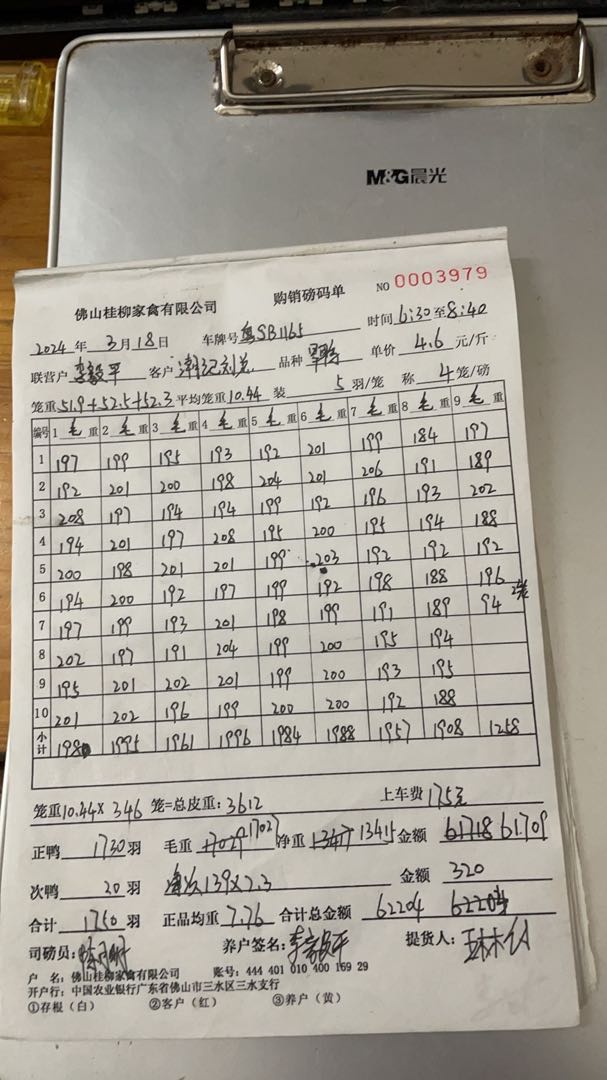 M&G晨光
佛山桂柳家禽有限公司 购销磅码单 NO 0003979
2024 年 3 月 18 日 车牌号 粤SB1165 时间 6:30 至 8:40
联营户 李毅平 客户 品种 单价 4.6 元/斤
笼重 51.9+52.5+52.3 平均笼重 10.44 装 5 羽/笼 称 4 笼/磅
编号 1 毛 重 2 毛 重 3 毛 重 4 毛 重 5 毛 重 6 毛 重 7 毛 重 8 毛 重 9 毛 重
1 197 199 195 193 192 201 199 184 197
2 192 201 200 198 204 201 206 191 189
3 208 197 194 194 199 192 196 193 202
4 194 201 197 208 195 200 195 194 188
5 200 198 201 201 199 203 192 192 192
6 194 200 192 197 199 192 198 188 196
7 197 199 193 201 198 199 191 189 94 2笼
8 202 197 191 204 199 200 195 194
9 195 201 202 201 199 200 193 195
10 201 202 196 199 200 200 192 188
小计 1980 1995 1961 1996 1984 1988 1957 1908 1258
笼重 10.44× 346 笼=总皮重: 3612 上车费 175元
正鸭 1730 羽 毛重 17027 净重 13415 金额 61718 61709
次鸭 20 羽 139×2.3 金额 320
合计 1750 羽 正品均重 7.76 合计总金额 62204
司磅员: 养户签名: 李毅平 提货人:
户 名: 佛山桂柳家禽有限公司 账号: 444 401 010 400 169 29
开户行: 中国农业银行广东省佛山市三水区三水支行
①存根(白) ②客户(红) ③养户(黄)